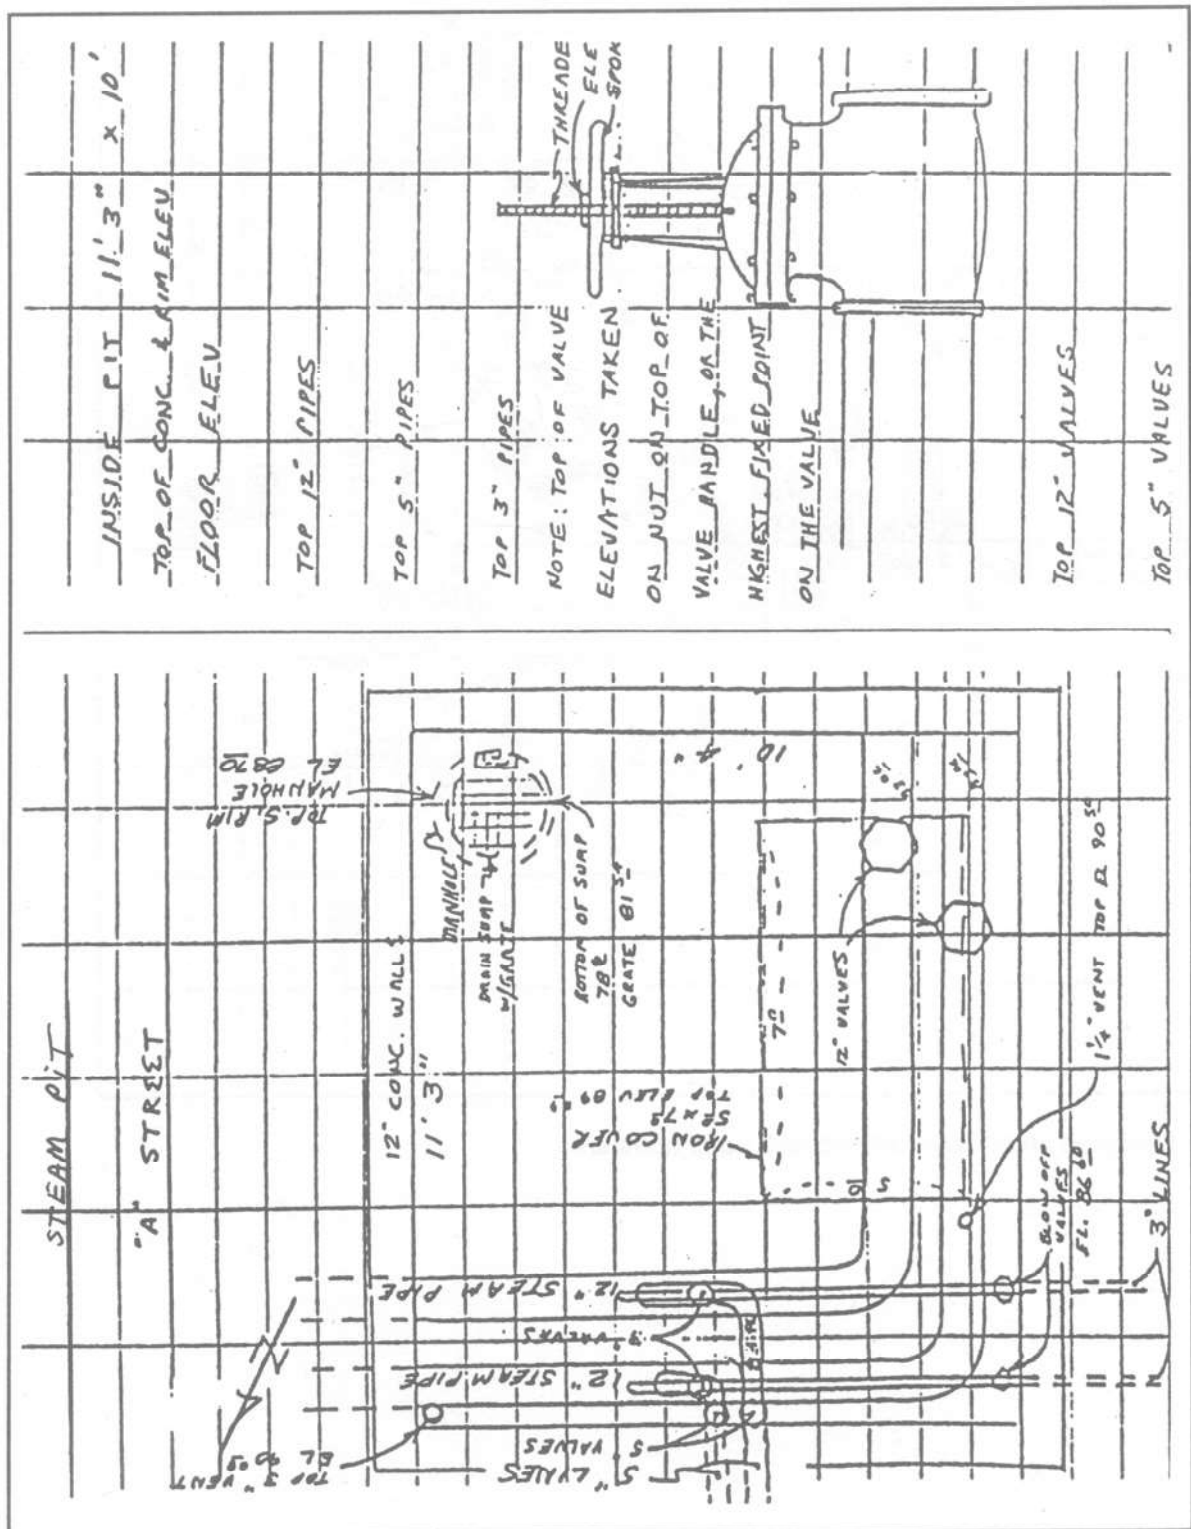 STEAM PIT
"A" STREET
12" CONC. WALLS
11' 3"
MANHOLE
TOP S. RIM
MANHOLE
DRAIN SUMP
W/GRATE
BOTTOM OF SUMP
GRATE 81 54
10' 4"
IRON COVER
TOP ELEV 89
12" VALVES
1 1/4" VENT TOP EL 90
BLOW OFF
VALVES
EL. 86 60
3" LINES
12" STEAM PIPE
VALVES
12" STEAM PIPE
5" VALVES
5" LINES
TOP 3" VENT
EL 90
INSIDE PIT 11' 3" x 10'
TOP OF CONC. & RIM ELEV
FLOOR ELEV
TOP 12" PIPES
TOP 5" PIPES
TOP 3" PIPES
NOTE: TOP OF VALVE
ELEVATIONS TAKEN
ON NUT ON TOP OF
VALVE HANDLE, OR THE
HIGHEST FIXED POINT
ON THE VALVE
THREADE
ELE
SPOK
TOP 12" VALVES
TOP 5" VALVES